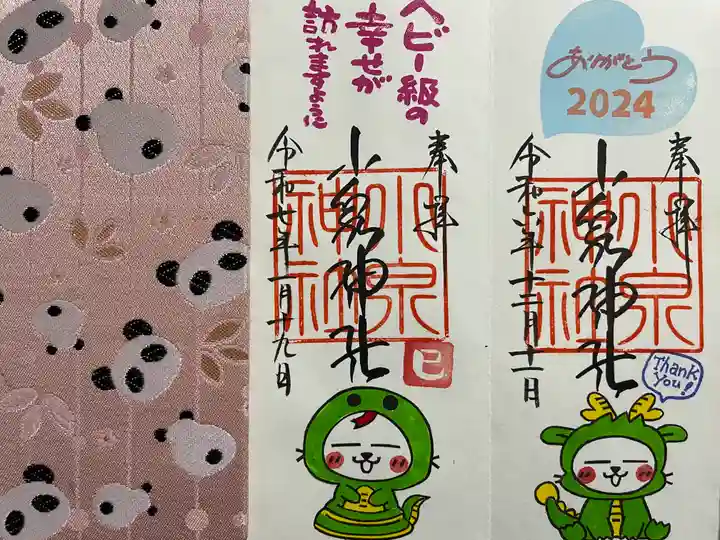 ありがとう
2024
奉拝
小泉神社
小泉
神社
令和六年十二月十一日
Thank
you!
ヘビー級の
幸せが
訪れますように
奉拝
小泉神社
小泉
神社
令和七年一月十九日
巳